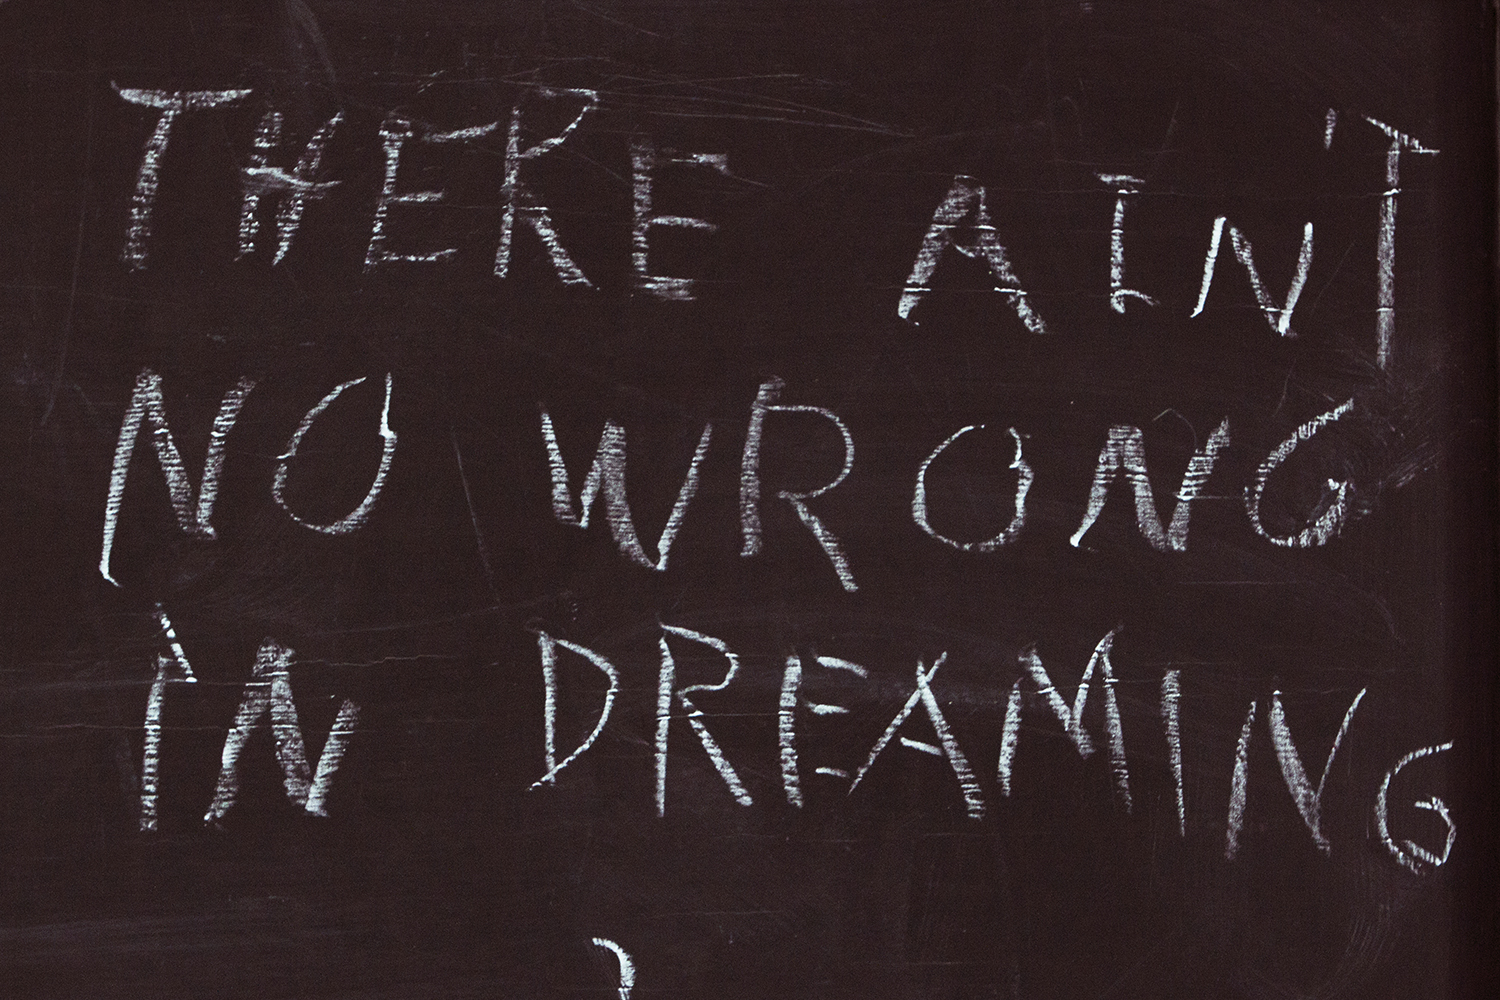 THERE AIN'T
NO WRONG
IN DREAMING